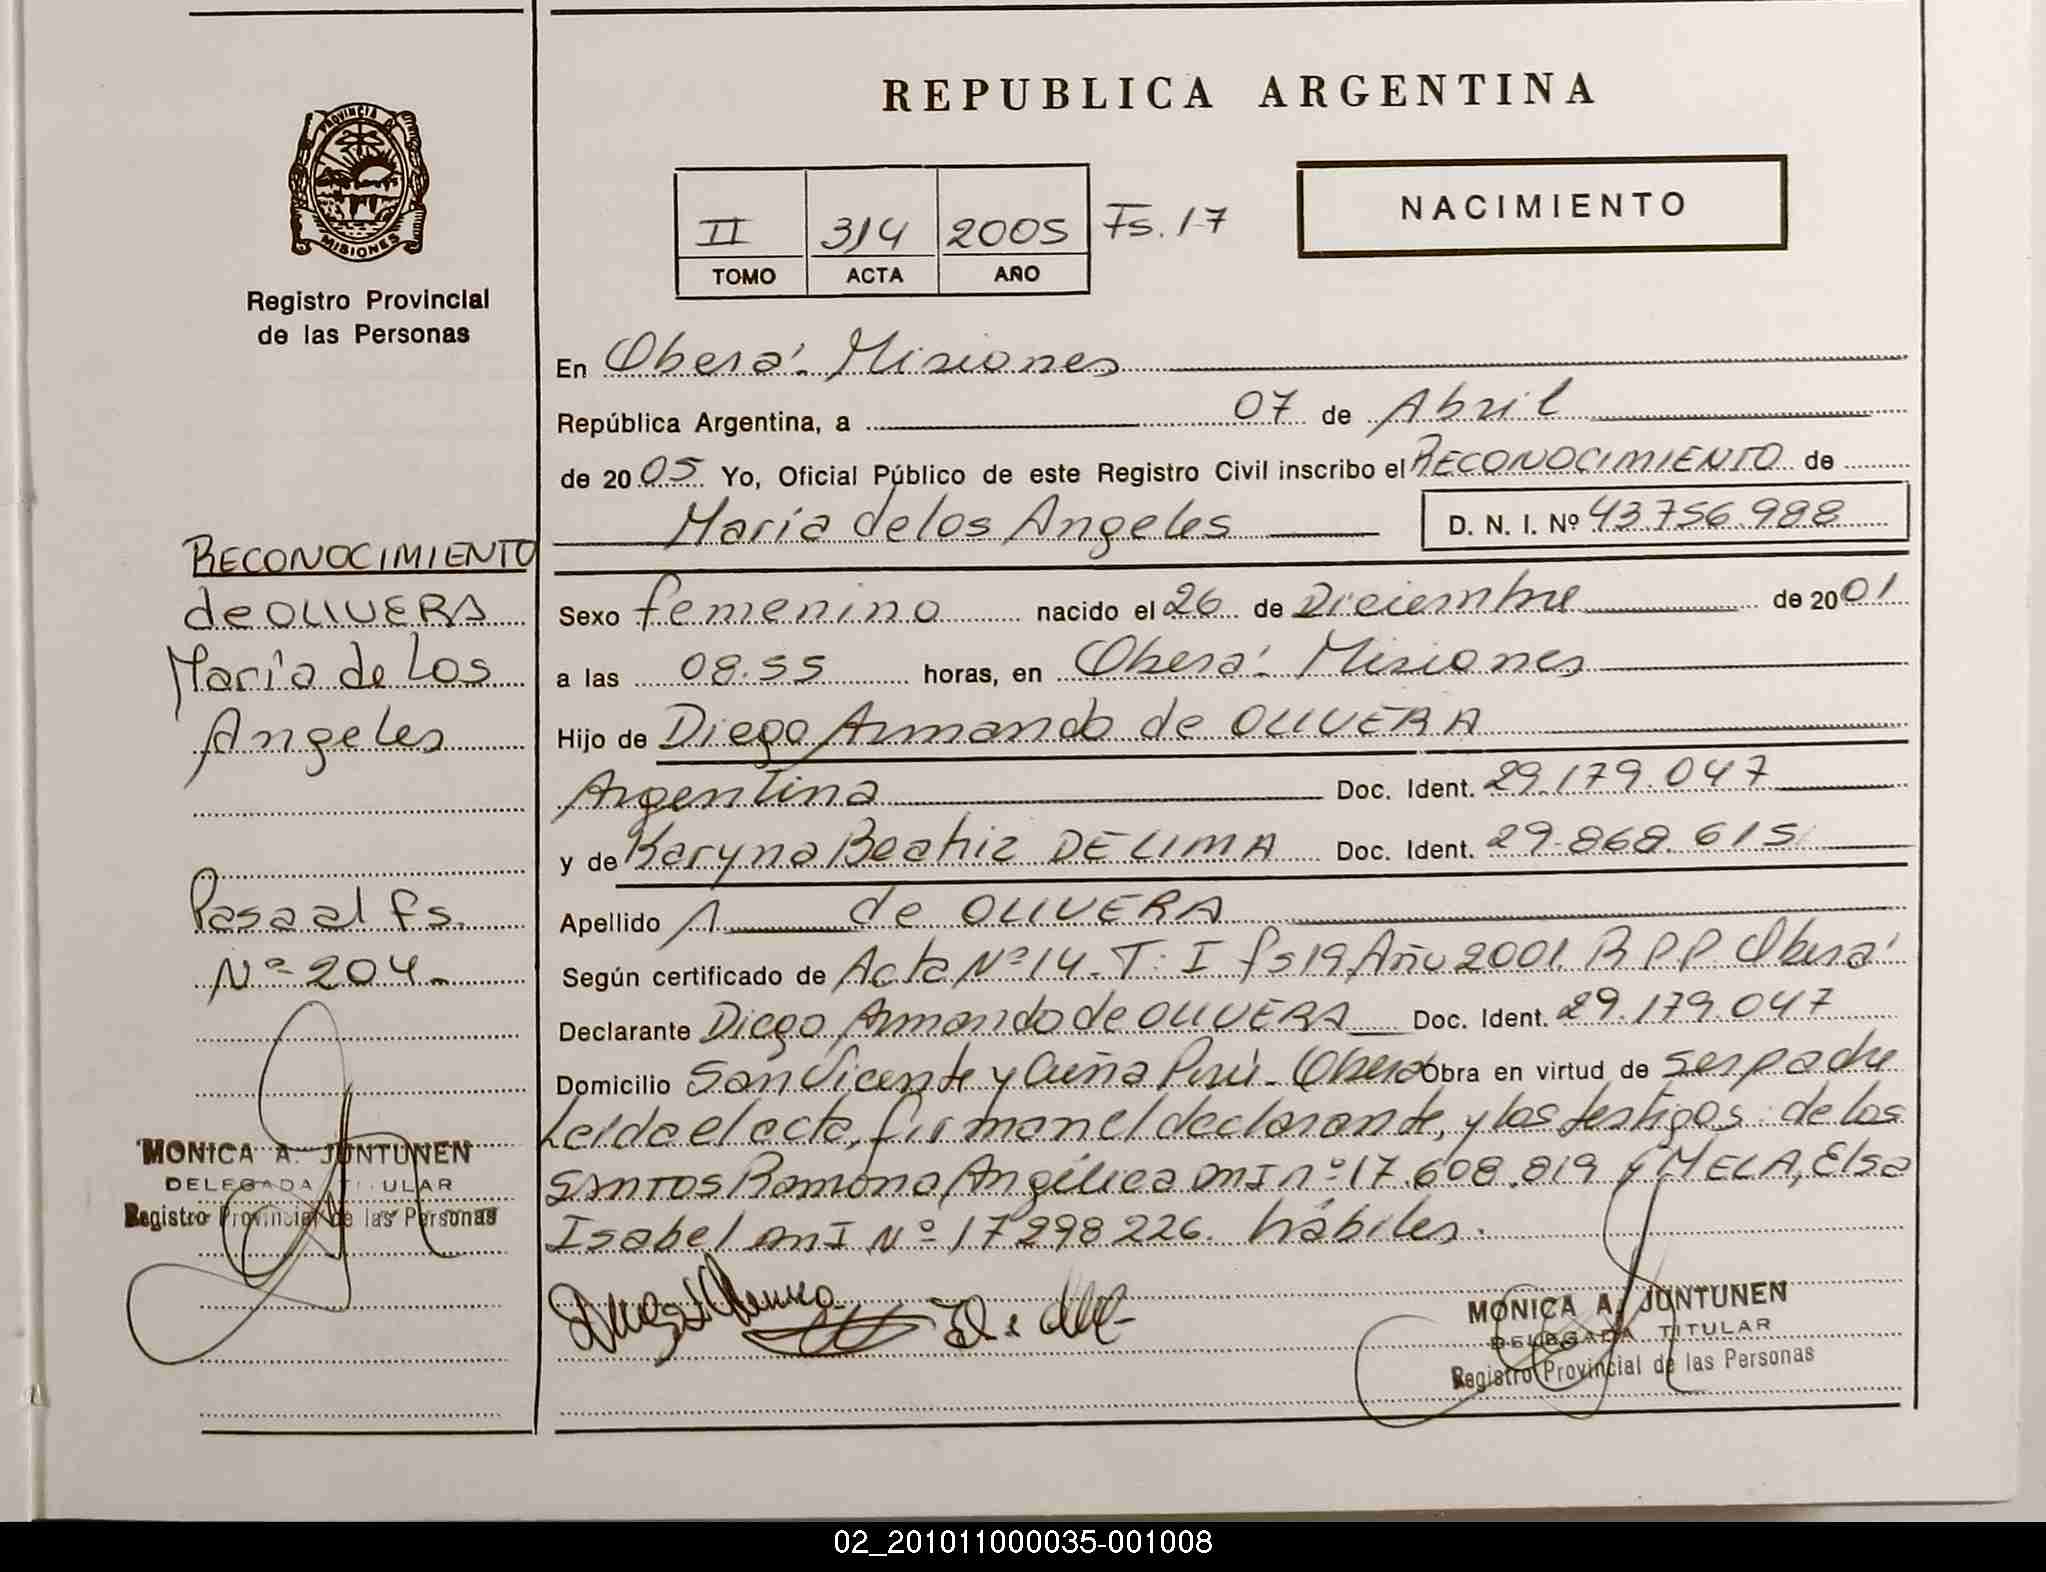 REPUBLICA ARGENTINA
PROVINCIA DE
MISIONES
Registro Provincial
de las Personas
II 314 2005 Fs. 17
TOMO ACTA AÑO
NACIMIENTO
En Oberá. Misiones
República Argentina, a 07 de Abril
de 2005 Yo, Oficial Público de este Registro Civil inscribo el RECONOCIMIENTO de
María de los Angeles D. N. I. Nº 43.756.988
Sexo femenino nacido el 26 de Diciembre de 2001
a las 08.55 horas, en Oberá. Misiones
Hijo de Diego Armando de OLIVERA
Argentina Doc. Ident. 29.179.047
y de Karyna Beatriz DE LIMA Doc. Ident. 29.868.615
Apellido /1 de OLIVERA
Según certificado de Acta Nº 14. T: I fs 19 Año 2001. R P P. Oberá
Declarante Diego Armando de OLIVERA Doc. Ident. 29.179.047
Domicilio San Vicente y Cuña Pirú - Oberá Obra en virtud de ser padre
Leída el acta, firman el declarante, y los testigos: de los
SANTOS Ramona Angélica DNI nº 17.608.819 y MELA, Elsa
Isabel DNI Nº 17 298 226. hábiles.
MONICA A. JUNTUNEN
DELEGADA TITULAR
Registro Provincial de las Personas
RECONOCIMIENTO
de OLIVERA
María de Los
Angeles
Pasa al fs.
Nº 204.
MONICA A. JUNTUNEN
DELEGADA TITULAR
Registro Provincial de las Personas
02_201011000035-001008